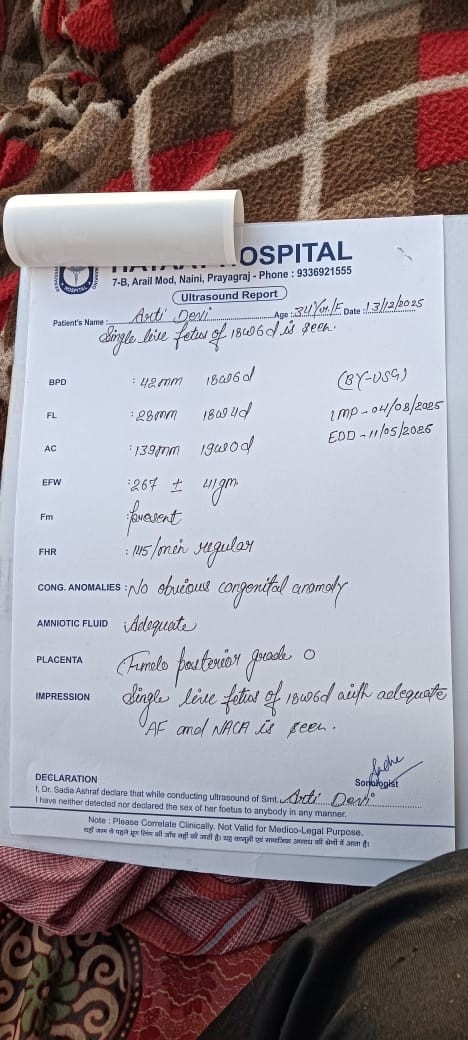 OSPITAL
7-B, Arail Mod, Naini, Prayagraj - Phone : 9336921555
Ultrasound Report
Patient's Name : Arti Devi Age : 34Yr/F Date : 13/12/2025
Single live fetus of 18w6d is seen.
BPD : 42mm 18w6d (BY-USG)
FL : 28mm 18w4d LMP - 04/08/2025
AC : 139mm 19w0d EDD - 11/05/2026
EFW : 267 ± 41gm
Fm : present
FHR : 145/min regular
CONG. ANOMALIES : No obvious congenital anomaly
AMNIOTIC FLUID : Adequate
PLACENTA posterior grade 0
IMPRESSION Single live fetus of 18w6d with adequate
AF and is seen.
Sonologist
DECLARATION
I, Dr. Sadia Ashraf declare that while conducting ultrasound of Smt. Arti Devi
I have neither detected nor declared the sex of her foetus to anybody in any manner.
Note : Please Correlate Clinically. Not Valid for Medico-Legal Purpose.
यहाँ जन्म से पहले भ्रूण लिंग की जाँच नहीं की जाती है। यह कानूनी एवं सामाजिक अपराध की श्रेणी में आता है।